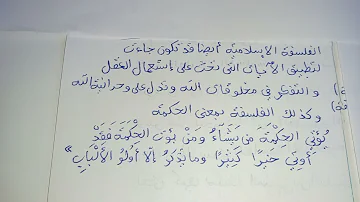 الفلسفة الإسلامية أيضا قد تكون جاءت
لتطبيق الآيات التي تحث على إستعمال العقل
و التفكر في مخلوقات الله وتدل على وحدانية الله
وكذلك الفلسفة بمعنى الحكمة
يُؤْتِي الحِكْمَةَ مَن يَشَآءُ وَمَنْ يؤتَ الْحِكْمَةَ فَقَدْ
أُوتِيَ خَيْرًا كَثِيْرًا وما يَذَّكَرُ إلّا أُولُو الْأَلْبَابِ»